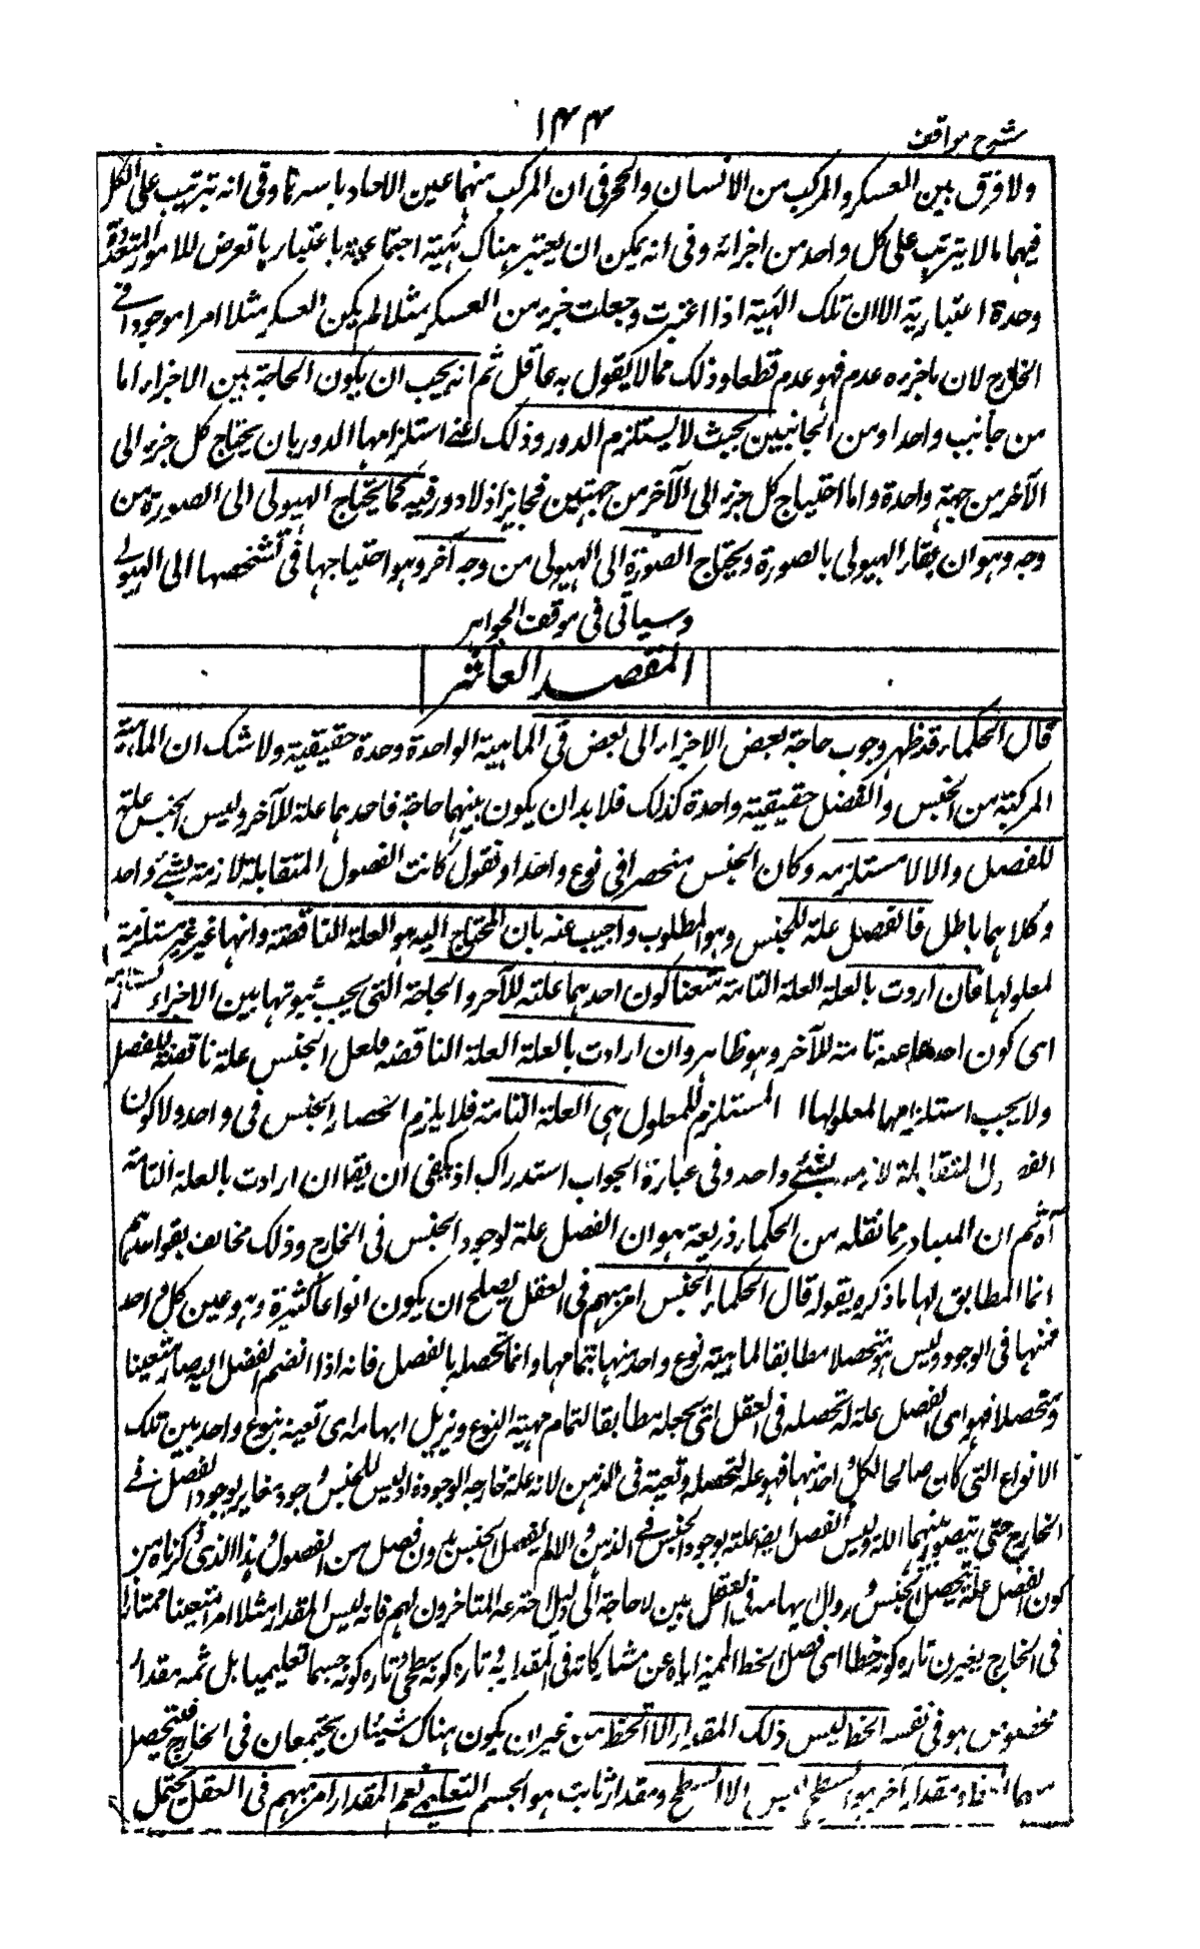 شرح مواقف
۱۴۴
ولا فرق بين العسكر والمركب من الانسان والحجر فى ان المركب منهما عين الاحاد باسرها وفى انه تيرتب على الكل
فيهما ما لا يترتب على كل واحد من اجزائه وفى انه يمكن ان يعتبر هناك هيئة اجتماعية باعتبارها تعرض للامور المتعددة
وحدة اعتبارية الا ان تلك الهيئة اذا اعتبرت وجعلت جزءا من العسكر مثلا لم يكن العسكر مثلا امرا موجودا فى
الخارج لان ما جزءه عدم فهو عدم قطعا وذلك مما لا يقول به عاقل ثم انه يجب ان يكون الحاجة بين الاجزاء اما
من جانب واحد او من الجانبين بحيث لا يستلزم الدور وذلك اعنى استلزامها الدور بان يحتاج كل جزء الى
الآخر من جهة واحدة واما احتياج كل جزء الى الآخر من جهتين فجايز اذ لا دور فيه كما يحتاج الهيولى الى الصورة من
وجه وهو ان بقاء الهيولى بالصورة ويحتاج الصورة الى الهيولى من وجه آخر وهو احتياجها فى تشخصها الى الهيولى
وسياتى فى موقف الجواهر
المقصد العاشر
قال الحكماء قد ظهر وجوب حاجة بعض الاجزاء الى بعض فى الماهية الواحدة وحدة حقيقية ولا شك ان الماهية
المركبة من الجنس والفصل حقيقية واحدة كذلك فلا بد ان يكون بينهما حاجة فاحدهما علة للآخر وليس الجنس علة
للفصل والا لاستلزمه وكان الجنس منحصرا فى نوع واحد او نقول كانت الفصول المتقابلة لازمة لشئ واحد
وكلاهما باطل فالفصل علة للجنس وهو المطلوب واجيب عنه بان المحتاج اليه هو العلة الناقصة وانها غير مستلزمة
لمعلولها فان اردت بالعلة العلة التامة منعنا كون احدهما علة للآخر والحاجة التى يجب ثبوتها بين الاجزاء
اى كون احدهما علة تامة للآخر وهو ظاهر وان اردت بالعلة العلة الناقصة فلعل الجنس علة ناقصة للفصل
ولا يجب استلزامها لمعلولها المستلزم للمعلول هى العلة التامة فلا يلزم انحصار الجنس فى واحد ولا كون
الفصول المتقابلة لازمة لشئ واحد وفى عبارة الجواب استدراك اذ يكفى ان يقا ان اردت بالعلة التامة
آه ثم ان المتبادر مما نقله من الحكماء ذريعة هو ان الفصل علة لوجود الجنس فى الخارج وذلك مخالف لقواعدهم
انما المطابق لها ما ذكره بقوله قال الحكماء الجنس امر مبهم فى العقل يصلح ان يكون انواعا كثيرة وهو عين كل واحد
منها فى الوجود وليس هو متحصلا مطابقا لماهية نوع واحد منها بتمامها وانما تحصله بالفصل فانه اذا انضم الفصل اليه صار متعينا
ومتحصلا فهو اى الفصل علة لتحصله فى العقل اى يجعله مطابقا لتمام مهية النوع ويزيل ابهامه اى تعينه بنوع واحد بين تلك
الانواع التى كان صالحا لكل واحد منها فهو علة لتحصله وتعينه فى الذهن لا انه علة خارجه الوجوده اذ ليس للجنس وجود مغاير لوجود الفصل فى
الخارج حتى يتصور بينهما العلة وليس الفصل ايضا علة لوجود الجنس فى الذهن والا لم يعقل الجنس بدون فصل من الفصول وهذا الذى ذكرناه من
كون الفصل علة لتحصل الجنس وزوال ابهامه فى العقل بين لا حاجة الى دليل اخترعه المتاخرون لهم فانه ليس المقدار مثلا امرا متعينا ممتازا
فى الخارج يغيرن تارة كونه خطا اى فصل الخط المميز اياه عن مشاركاته فى المقدارية تارة كونه سطحا وتارة كونه جسما تعليميا بل ثمه مقدار
مخصوص هو فى نفسه الخط ليس ذلك المقدار الا الخط من غير ان يكون هناك شيئان يجتمعان فى الخارج فيتحصل
ومقدار آخر هو السطح ليس الا السطح ومقدار ثالث هو الجسم التعليمى نعم المقدار امر مبهم فى العقل يحتمل